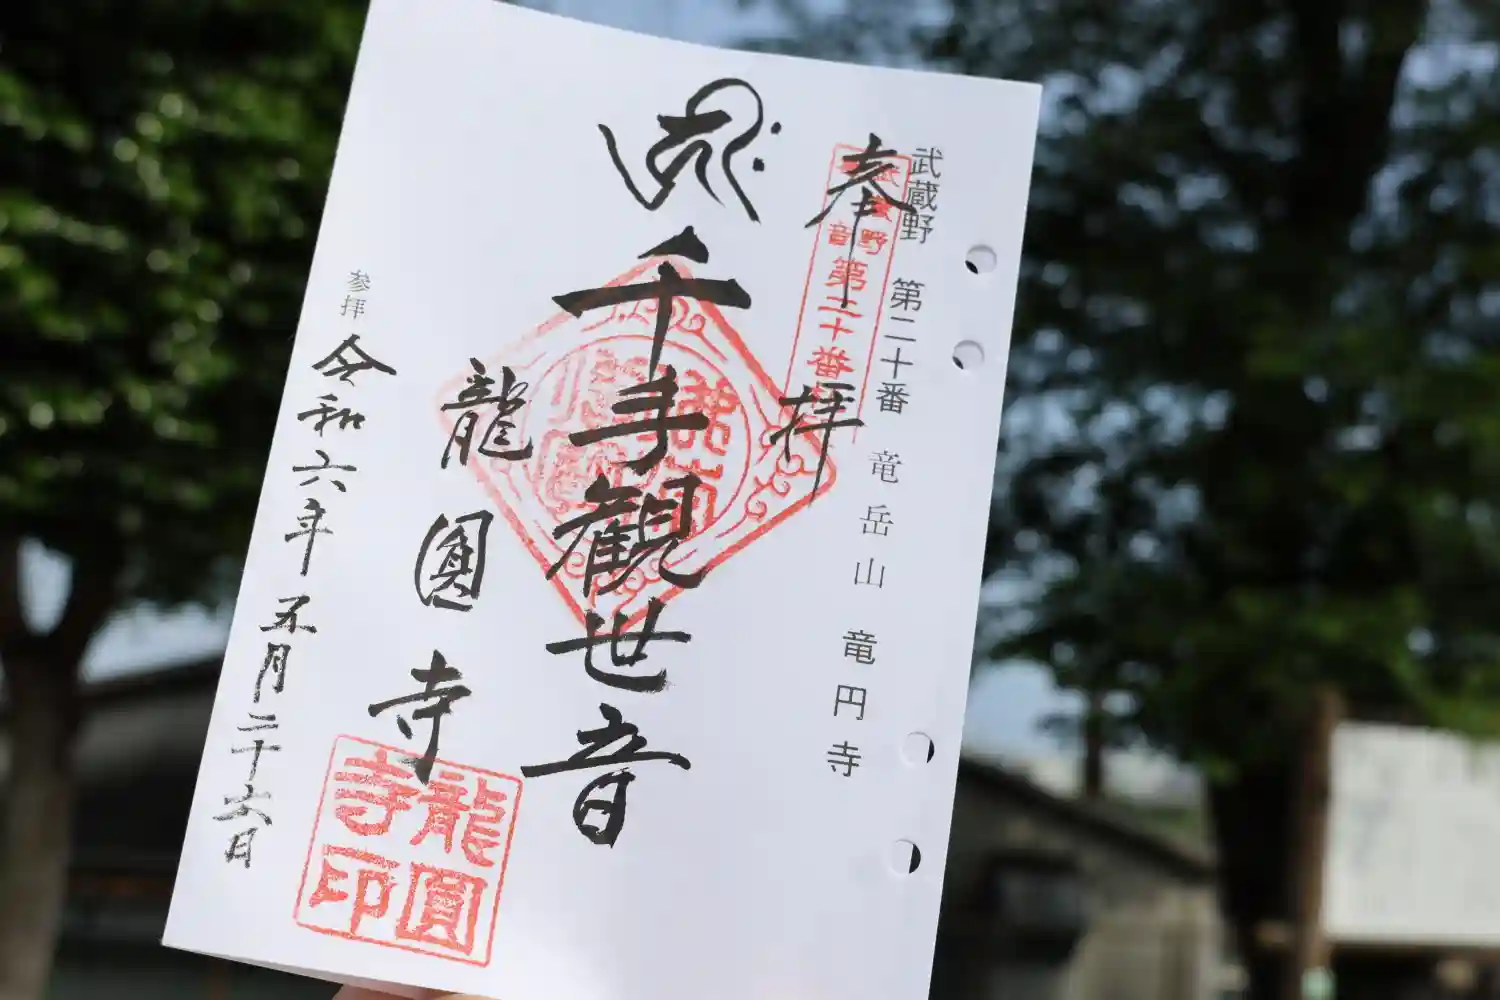 武蔵野 第二十番 竜岳山 竜円寺
奉拝
第二十番
千手観世音
龍圓寺
龍圓
寺印
参拝 令和六年 五月二十六日